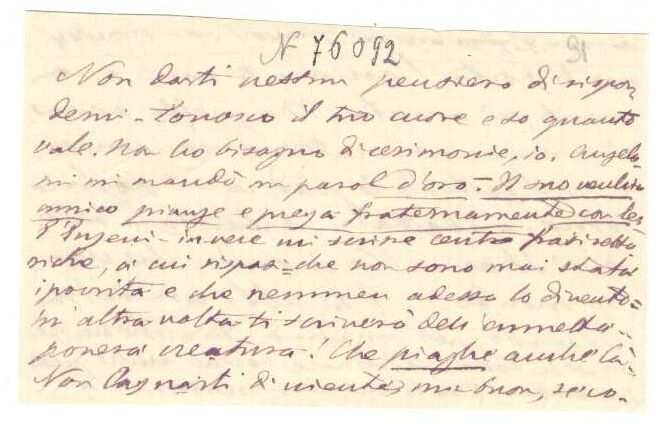 N 76092
91
Non darti nessun pensiero di rispon
dermi - Conosco il tuo cuore e so quanto
vale. Non ho bisogno di cerimonie, io. Angelo
mi mandò un parol d'oro - Il suo vecchio
amico piange e prega fraternamente con lei
invece mi scrisse cento frasi retto
riche, a cui risposi = che non sono mai stata
ipocrita e che nemmen adesso lo divento -
altra volta ti scriverò dell'
povera creatura! Che piaghe anche là -
Non lagnarti di niente, ma buon, se